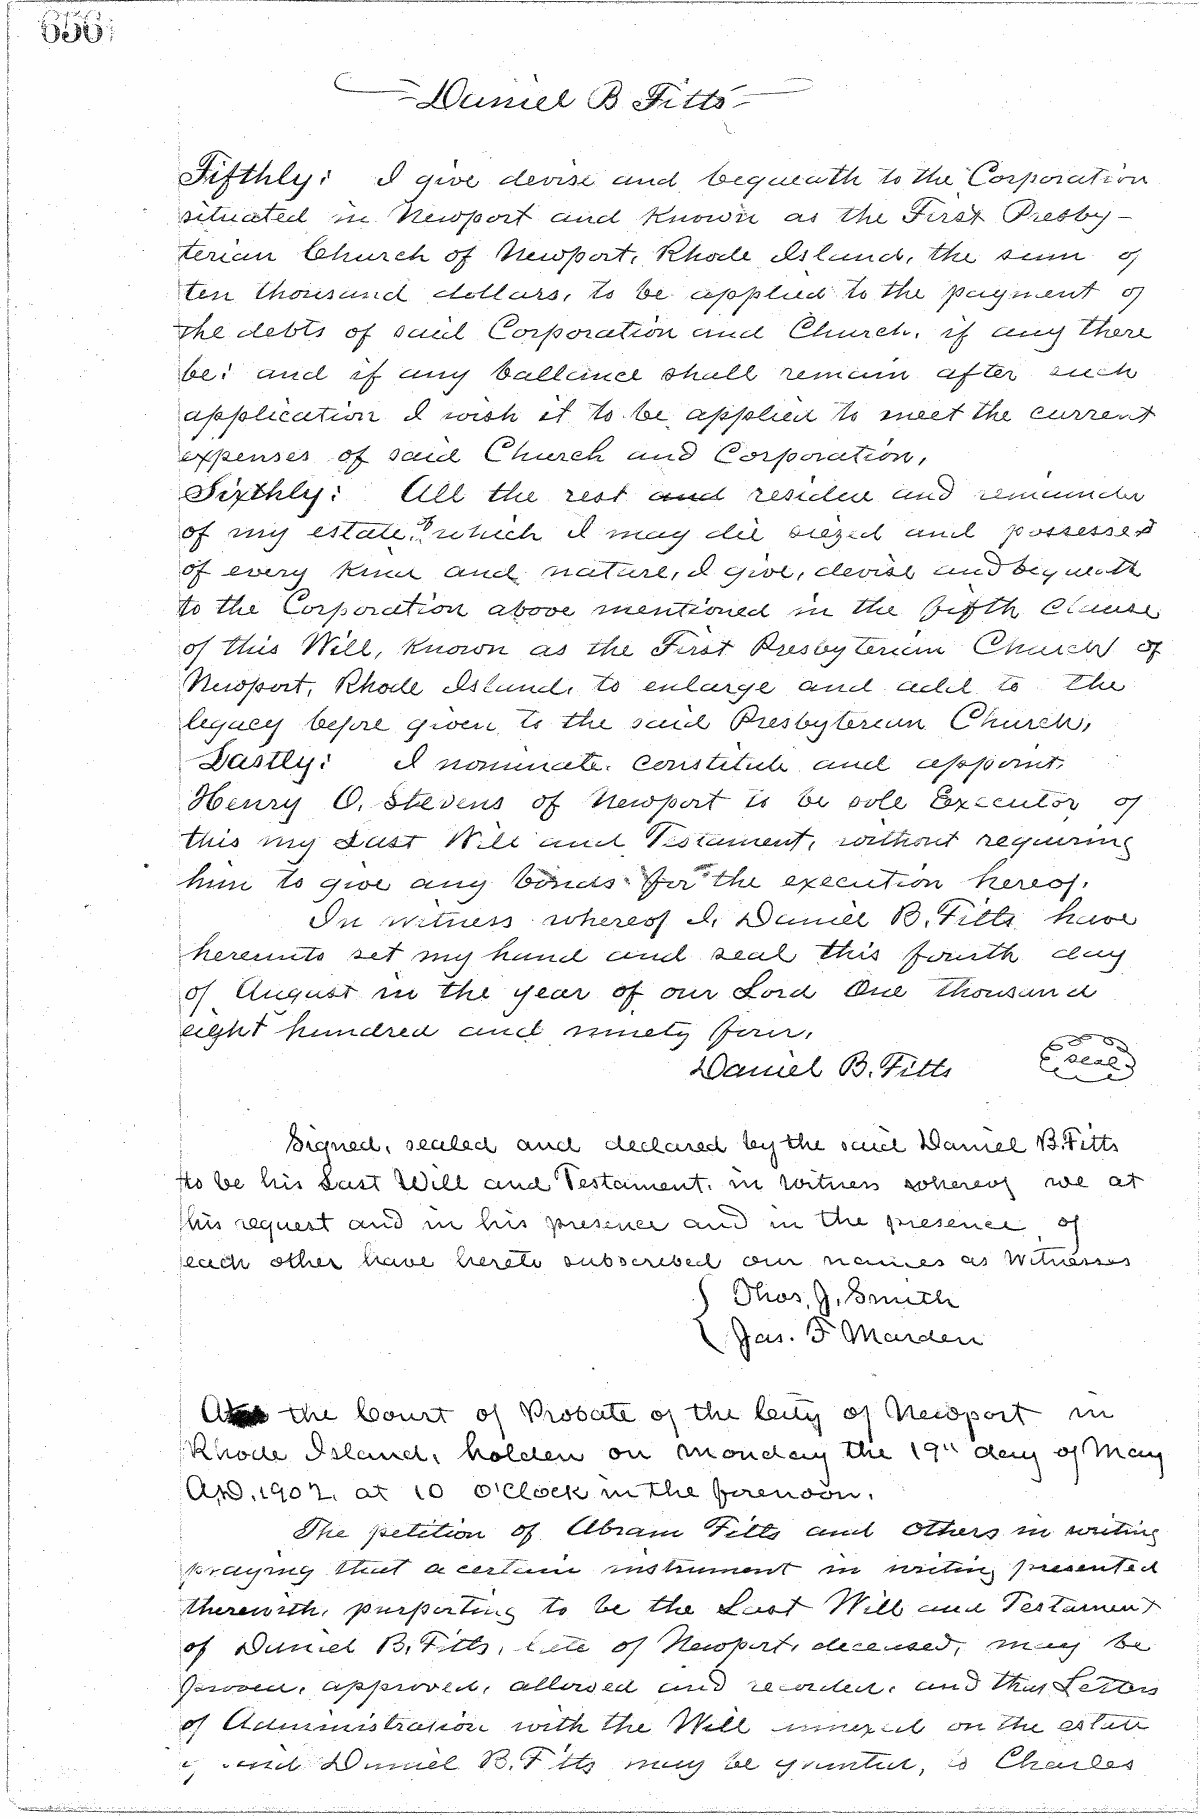 656
Daniel B Fitts
Fifthly: I give devise and bequeath to the Corporation
situated in Newport and known as the First Presby-
terian Church of Newport, Rhode Island, the sum of
ten thousand dollars, to be applied to the payment of
the debts of said Corporation and Church, if any there
be: and if any ballance shall remain after such
application I wish it to be applied to meet the current
expenses of said Church and Corporation,
Sixthly: All the rest and residue and remainder
of my estate, which I may die siezed and possessed
of every kind and nature, I give, devise and bequeath
to the Corporation above mentioned in the fifth Clause
of this Will, known as the First Presbyterian Church of
Newport, Rhode Island, to enlarge and add to the
legacy before given to the said Presbyterian Church,
Lastly: I nominate. constitute and appoint,
Henry O. Stevens of Newport to be sole Executor of
this my Last Will and Testament, without requiring
him to give any bonds for the execution hereof.
In witness whereof I, Daniel B. Fitts have
hereunto set my hand and seal this fourth day
of August in the year of our Lord One thousand
eight hundred and ninety four,
Daniel B. Fitts seal
Signed, sealed and declared by the said Daniel B. Fitts
to be his Last Will and Testament. in witness whereof we at
his request and in his presence and in the presence of
each other have hereto subscribed our names as Witnesses
Thos. J. Smith
Jas. F Marden
At the Court of Probate of the City of Newport in
Rhode Island, holden on Monday the 19" day of May
A.D. 1902, at 10 o'Clock in the forenoon.
The petition of Abram Fitts and others in writing
praying that a certain instrument in writing presented
therewith, purporting to be the Last Will and Testament
of Daniel B. Fitts, late of Newport, deceased, may be
proved, approved, allowed and recorded, and that Letters
of Administration with the Will annexed on the estate
of said Daniel B. Fitts may be granted, to Charles